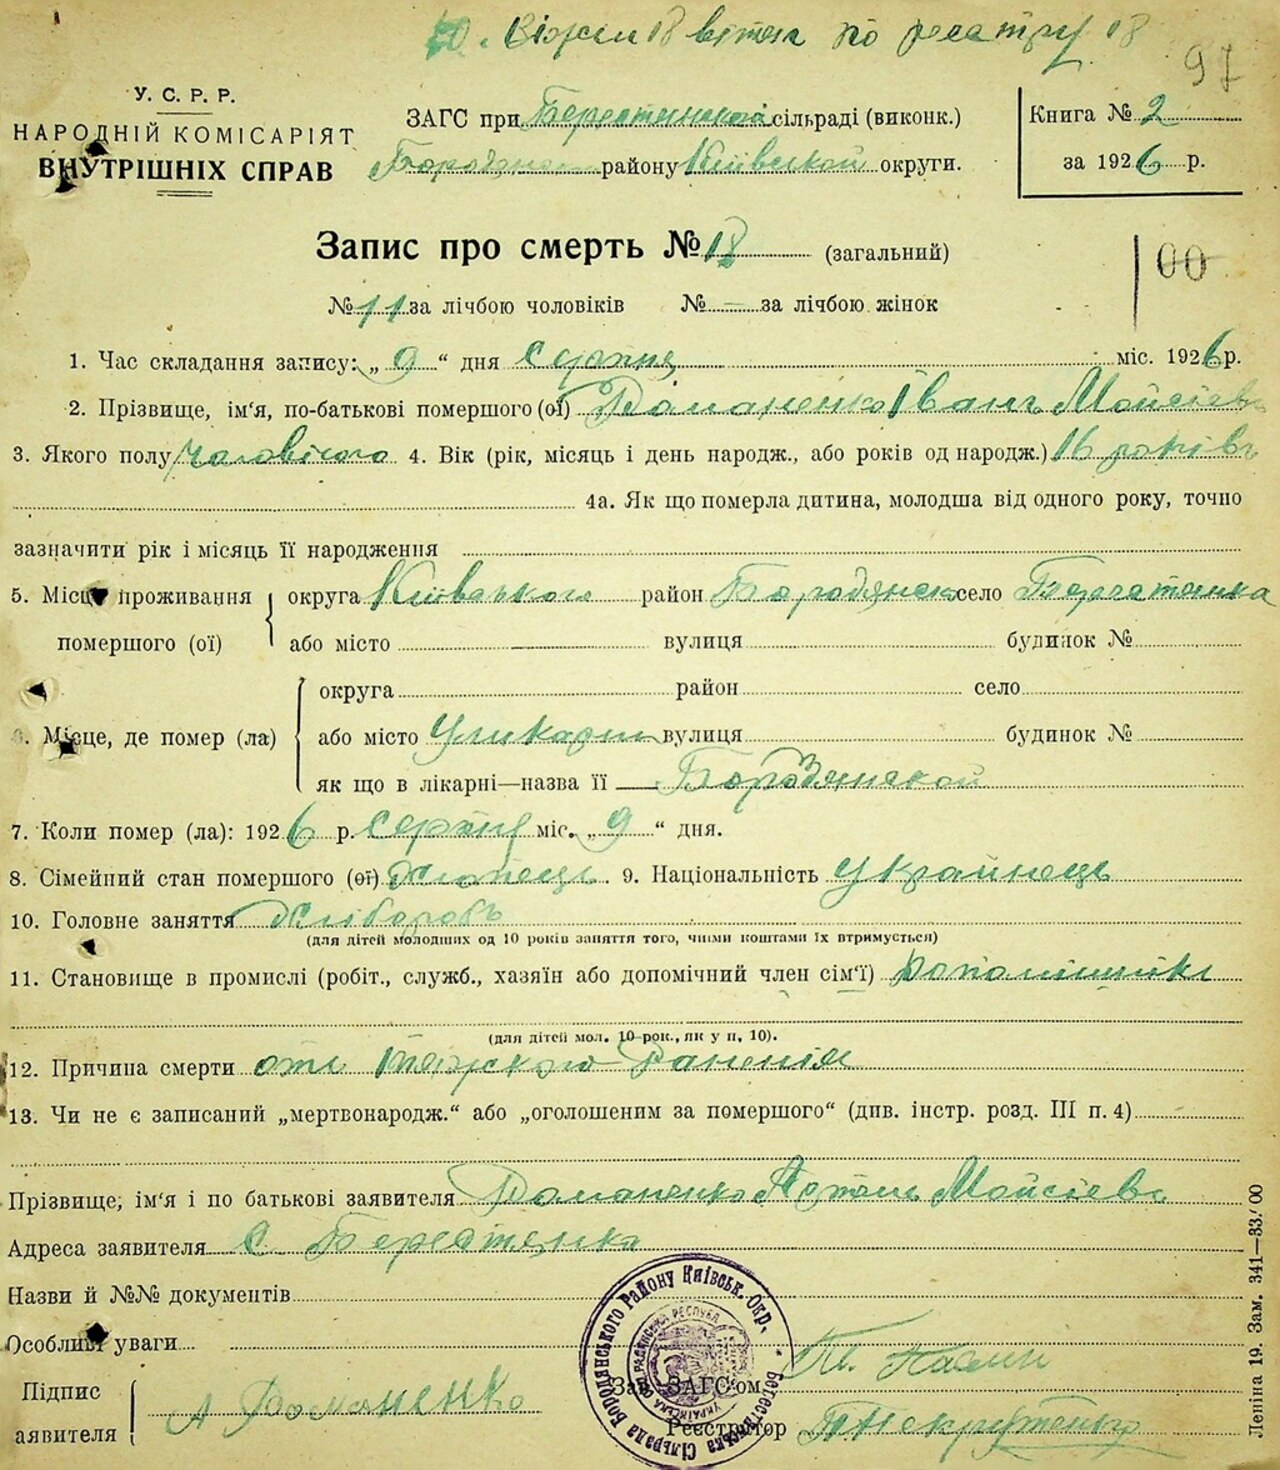 18 витяг по реєстру 18
97
У. С. Р. Р.
НАРОДНІЙ КОМІСАРІЯТ
ВНУТРІШНІХ СПРАВ
ЗАГС при Берестянській сільраді (виконк.)
Бородянск району Київской округи.
Книга № 2
за 1926 р.
Запис про смерть № 18 (загальний)
00
№ 11 за лічбою чоловіків № — за лічбою жінок
1. Час складання запису: „ 9 “ дня Серпня міс. 1926 р.
2. Прізвище, ім‘я, по-батькові помершого (ої) Романенко Іванъ Мойсієв
3. Якого полу чоловічого 4. Вік (рік, місяць і день народж., або років од народж.) 16 років
4а. Як що померла дитина, молодша від одного року, точно
зазначити рік і місяць її народження
5. Місце проживання помершого (ої) округа Київського район Бородянск село Берестянка
або місто вулиця будинок №
6. Місце, де помер (ла) округа район село
або місто вулиця будинок №
як що в лікарні—назва її Бородянской
7. Коли помер (ла): 1926 р. Серпня міс. „ 9 “ дня.
8. Сімейний стан помершого (ої) Хлопець 9. Національність Українець
10. Головне заняття Хлібороб
(для дітей молодших од 10 років заняття того, чиїми коштами їх втримується)
11. Становище в промислі (робіт., служб., хазяїн або допомічний член сім‘ї)
(для дітей мол. 10-рок., як у п. 10).
12. Причина смерти отъ тяжкого Раненія
13. Чи не є записаний „мертвонародж.“ або „оголошеним за помершого“ (див. інстр. розд. III п. 4)
Прізвище, ім‘я і по батькові заявителя Романенко Мойсієв
Адреса заявителя С. Берестянка
Назви й №№ документів
Особливі уваги
Підпис
аявителя А Романенко
Зав. ЗАГС‘ом
Реєстратор
Бородянського Району Київськ. Окр. Берестянська Сільрада
УКРАЇНСЬКА СОЦ. РАДЯНСЬКА РЕСПУБ.
Леніна 19. Зам. 341—33.000